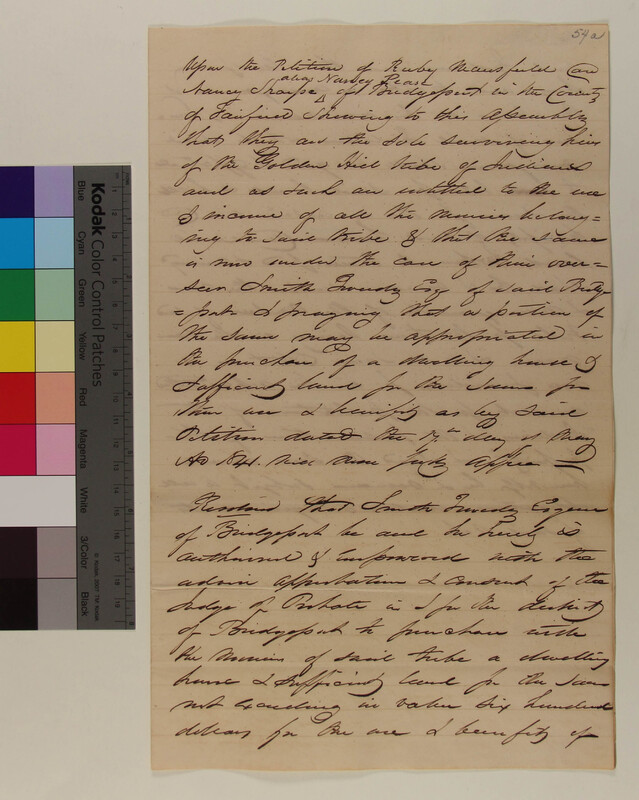 54a
Upon the Petition of Ruby Mansfield and
alias Nancy Pease
Nancy Sharpe of Bridgeport in the County
of Fairfield Shewing to this Assembly
that they are the Sole surviving heirs
of the Golden Hill tribe of Indians
and as such are intitled to the use
& income of all the monies belong=
ing to said tribe & that the same
is now under the care of their over=
seer Smith Esqr of said Bridge
=port & praying that a portion of
the same may be appropriated in
the purchase of a dwelling house &
Sufficient land for the same for
their use & benifit as by said
Petition dated the 7th day of May
AD 1841. will more fully appear
Resolved That Smith Esquire
of Bridgeport be and he hereby is
authorised & impowered with the
advice approbation & consent of the
Judge of Probate in & for the district
of Bridgeport to purchase with
the monies of said tribe a dwelling
house & sufficient land for the same
not exceeding in value six hundred
dollars for the use & benefit of
Kodak Color Control Patches
Blue
Cyan
Green
Yellow
Red
Magenta
White
3/Color
Black
© Kodak, 2007 TM: Kodak